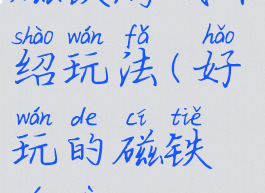 shào wán fǎ hǎo
绍玩法(好
wán de cí tiě
玩的磁铁